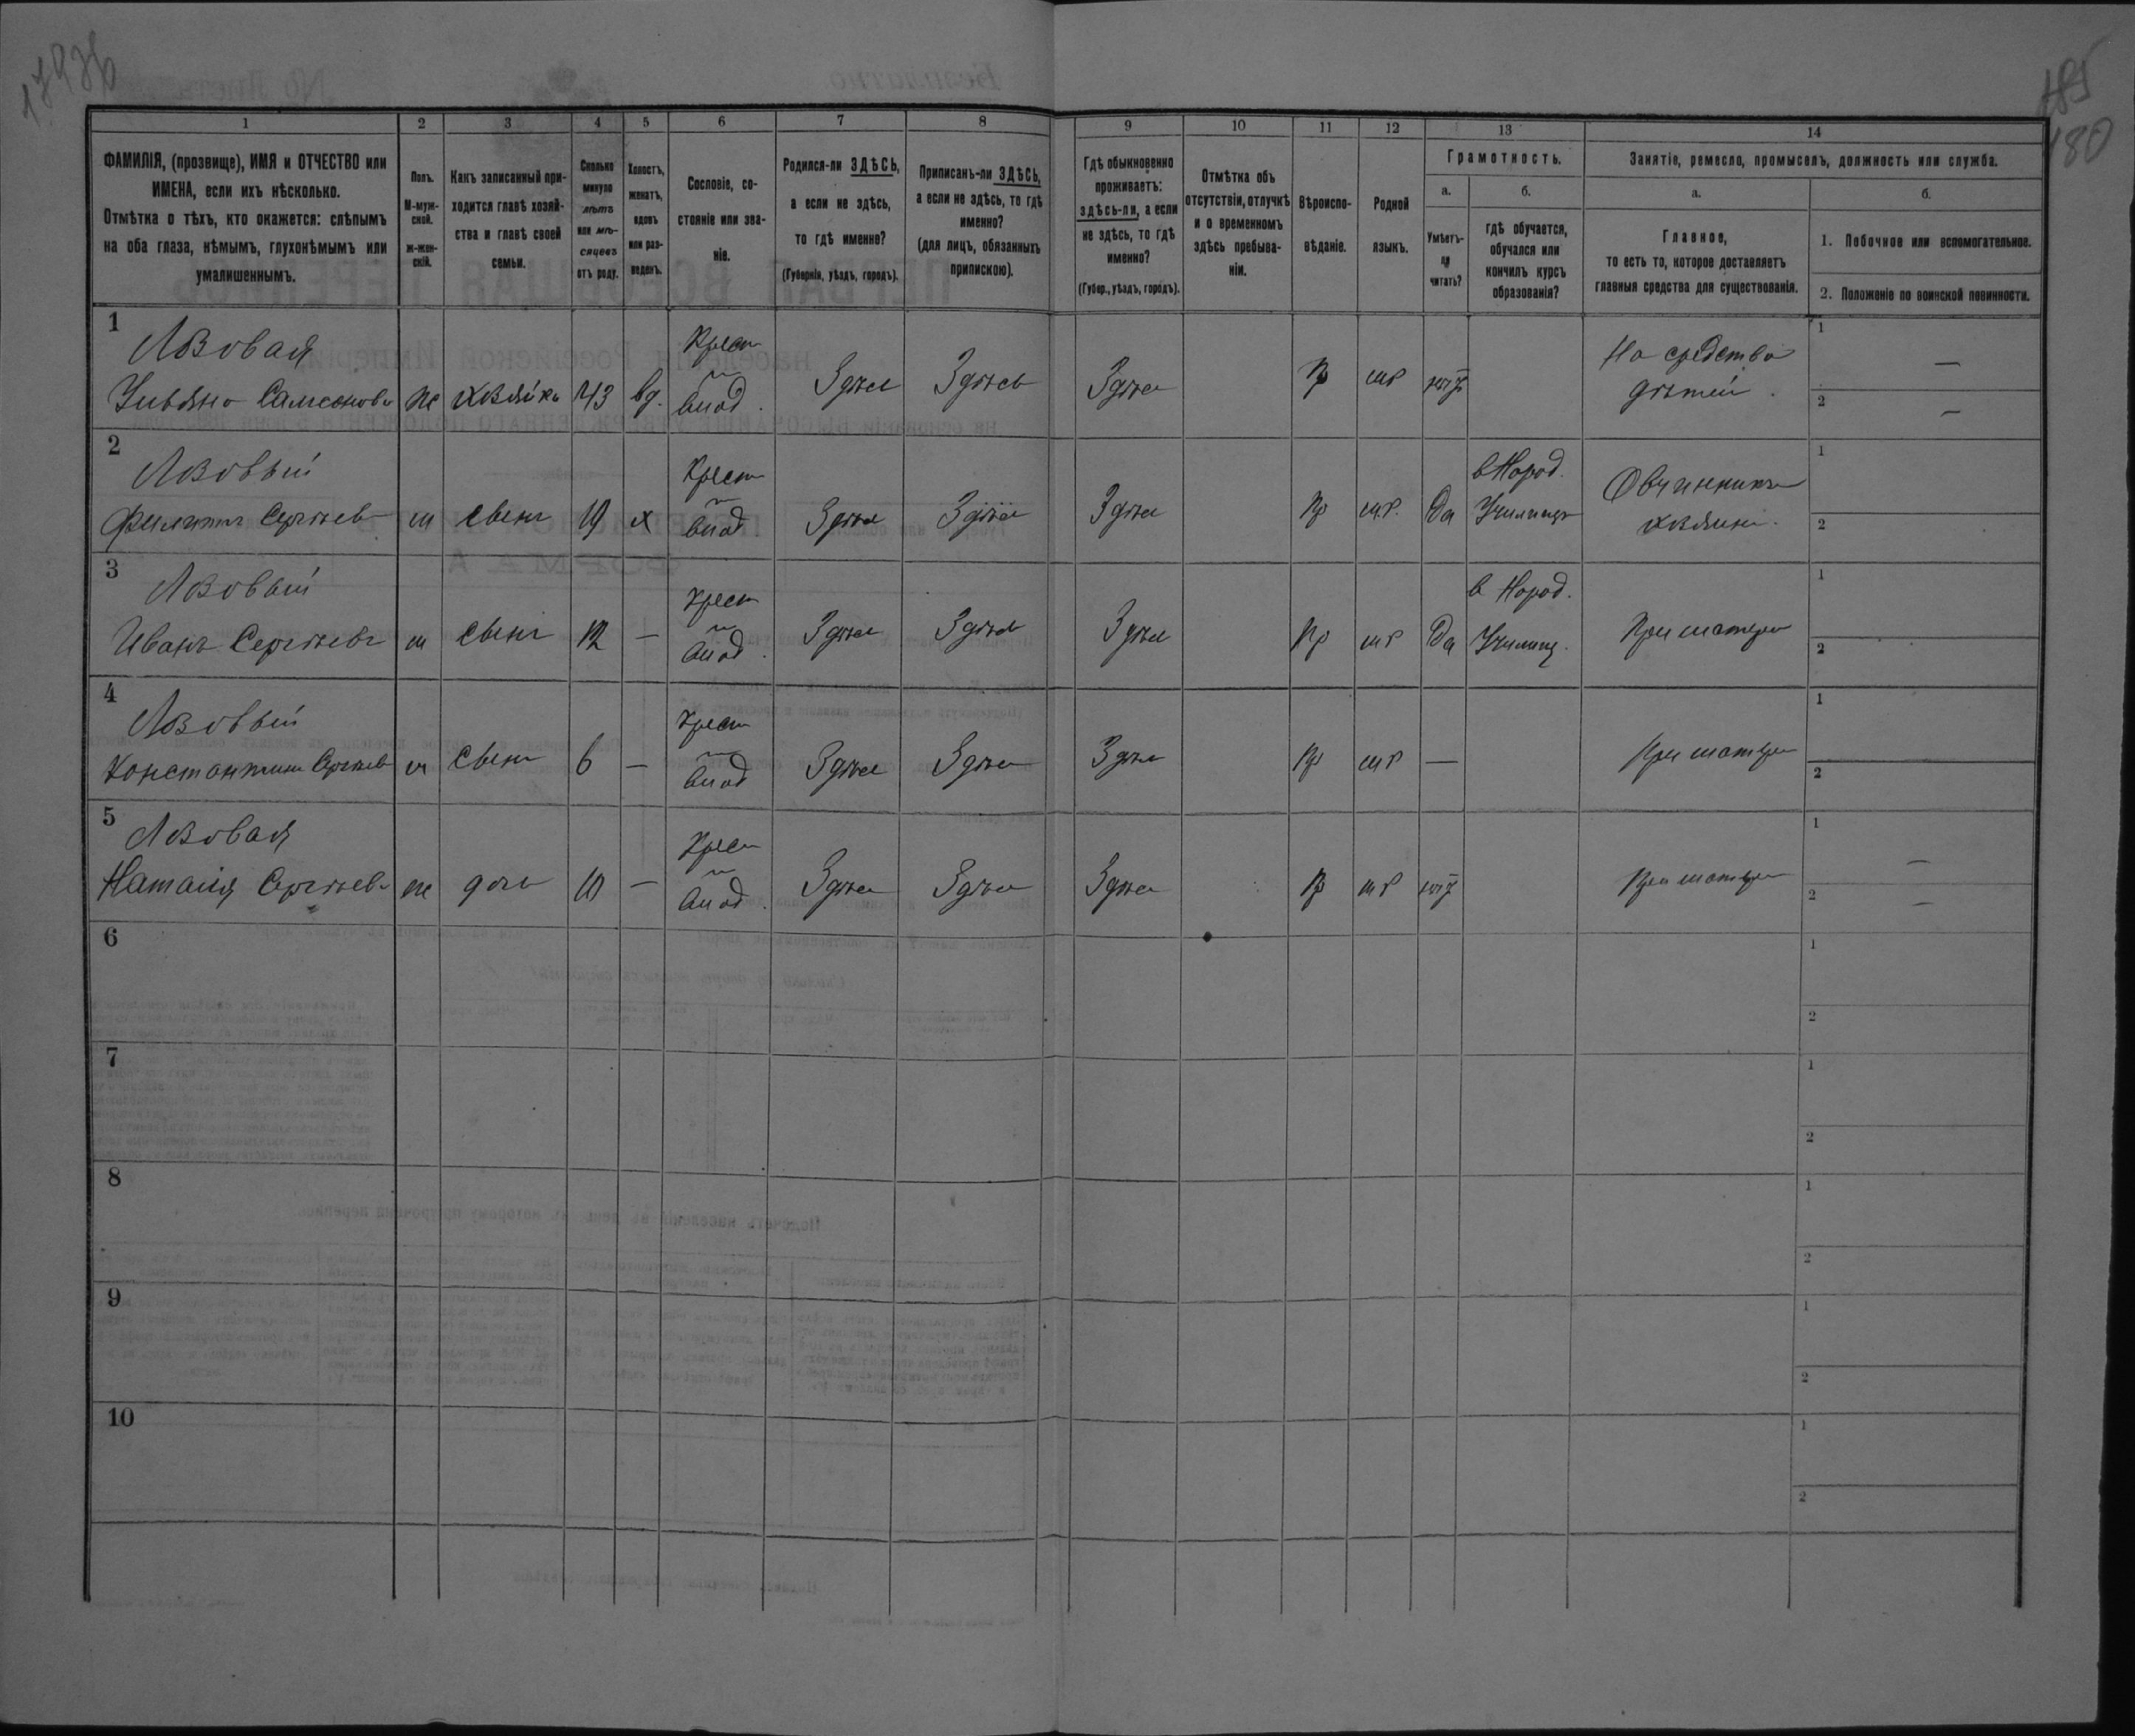 1 2 3 4 5 6 7 8 9 10 11 12 13 14
ФАМИЛІЯ, (прозвище), ИМЯ и ОТЧЕСТВО или
ИМЕНА, если ихъ нѣсколько.
Отмѣтка о тѣхъ, кто окажется: слѣпымъ
на оба глаза, нѣмымъ, глухонѣмымъ или
умалишеннымъ.
Полъ.
М-муж-
ской.
ж-жен-
скій.
Какъ записанный при-
ходится главѣ хозяй-
ства и главѣ своей
семьи.
Сколько
минуло
лѣтъ
или мѣ-
сяцевъ
отъ роду.
Холостъ,
женатъ,
вдовъ
или раз-
веденъ.
Сословіе, со-
стояніе или зва-
ніе.
Родился-ли ЗДѢСЬ,
а если не здѣсь,
то гдѣ именно?
(Губернія, уѣздъ, городъ).
Приписанъ-ли ЗДѢСЬ,
а если не здѣсь, то гдѣ
именно?
(для лицъ, обязанныхъ
припискою).
Гдѣ обыкновенно
проживаетъ:
здѣсь-ли, а если
не здѣсь, то гдѣ
именно?
(Губер., уѣздъ, городъ).
Отмѣтка объ
отсутствіи, отлучкѣ
и о временномъ
здѣсь пребыва-
ніи.
Вѣроиспо-
вѣданіе.
Родной
языкъ.
Грамотность.
а.
Умѣетъ-
ли
читать?
б.
гдѣ обучается,
обучался или
кончилъ курсъ
образованія?
Занятіе, ремесло, промыселъ, должность или служба.
а.
Главное,
то есть то, которое доставляетъ
главныя средства для существованія.
б.
1. Побочное или вспомогательное.
2. Положеніе по воинской повинности.
1 Лозовая Крест На средства 1 —
Ульяна Самсонова ж хозяйка 43 вд. Здѣсь Здѣсь Здѣсь Пр мр нѣт дѣтей. 2 —
2 Лозовый Крест в Народ. Овчинникъ 1
Филиппъ Сергѣев м сынъ 19 х Здѣсь Здѣсь Здѣсь Пр м.р. Да Училищѣ хозяинъ. 2
3 Лозовый Крест в Народ. 1
Иванъ Сергѣевъ м сынъ 12 — Здѣсь Здѣсь Здѣсь Пр мр Да Училищ. При матери 2
4 Лозовый Крест 1
Константинъ Сергѣев м сынъ 6 — Здѣсь Здѣсь Здѣсь Пр мр — При матери 2
5 Лозовая Крест 1 —
Наталія Сергѣев ж дочь 10 — Здѣсь Здѣсь Здѣсь Пр мр нѣт При матери 2 —
6 1
2
7 1
2
8 1
2
9 1
2
10 1
2
180